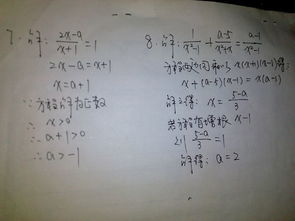 7. 解: (2x-a)/(x+1) = 1
2x-a = x+1
x = a+1
∵方程解为正数
∴ x>0
∴ a+1>0
∴ a>-1
8. 解: 1/(x²-1) + (a-5)/(x²+x) = (a-1)/(x²-1)
方程两边同乘以 x(x+1)(x-1)得:
x+(a-5)(x-1) = x(a-1)
解之得: x = (5-a)/3
若方程有增根 x=1
则 (5-a)/3 = 1
解得: a=2